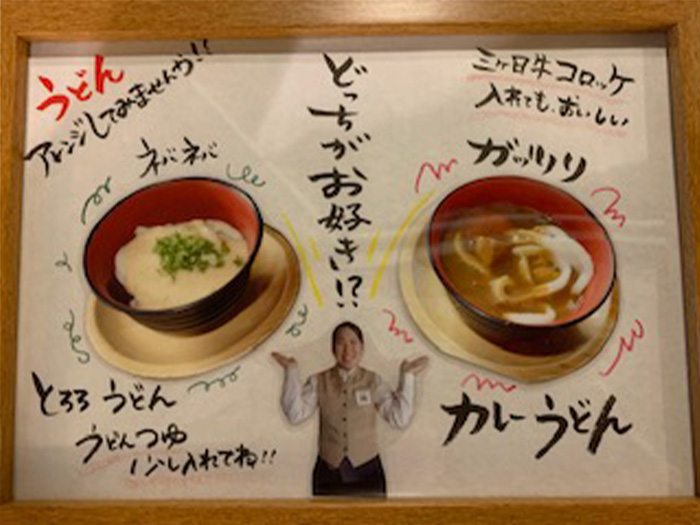 うどん
アレンジしてみませんか!!
どっちがお好き!?
三ヶ日牛コロッケ
入れても、おいしい
ネバネバ
ガッツリ
とろろうどん
うどんつゆ
少し入れてね!!
カレーうどん